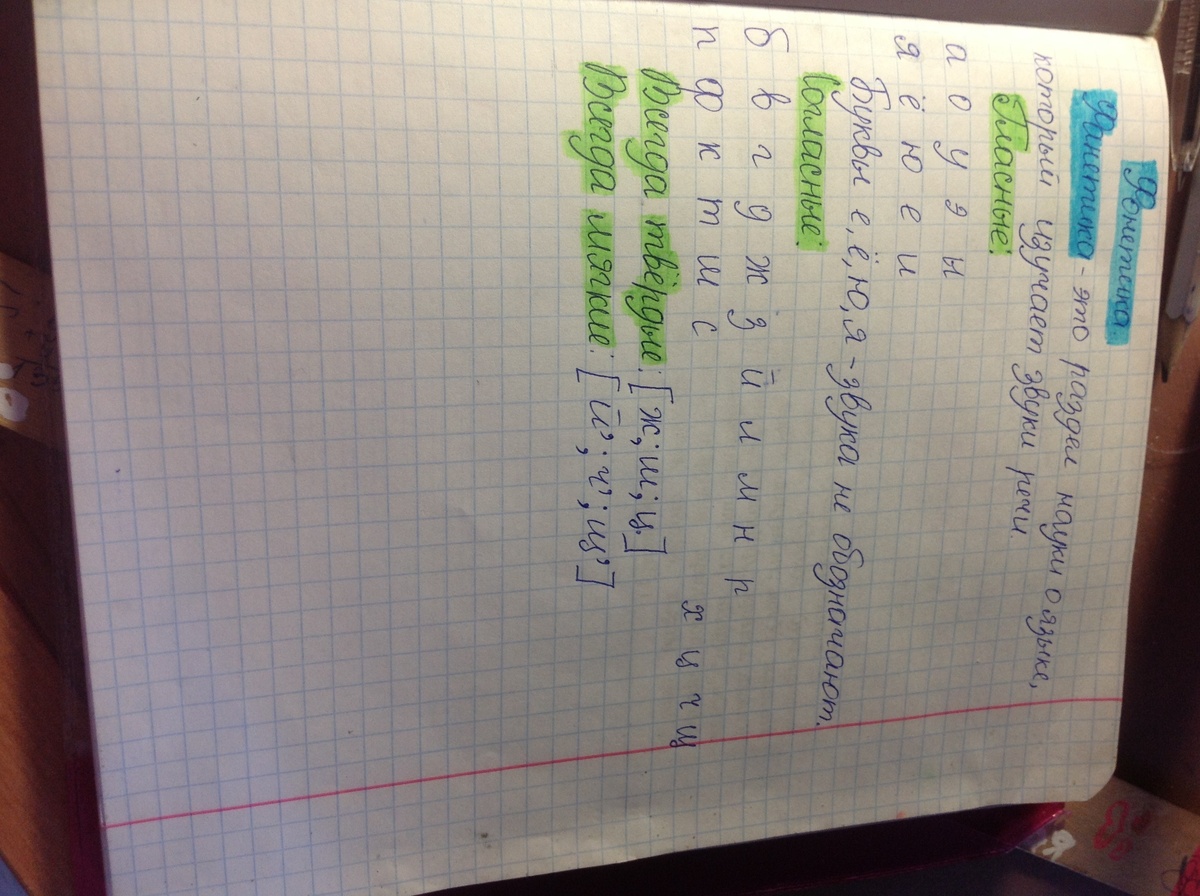 Фонетика.
Фанетика - это раздел науки о языке,
который изучает звуки речи
Гласные:
а о у э ы
я ё ю е и
Буквы е, ё, ю, я - звука не обозначают.
Согласные:
б в г д ж з й л м н р
п ф к т ш с х ц ч щ
Всегда твёрдые: [ж; ш; ц]
Всегда мягкие: [й'; ч'; щ']